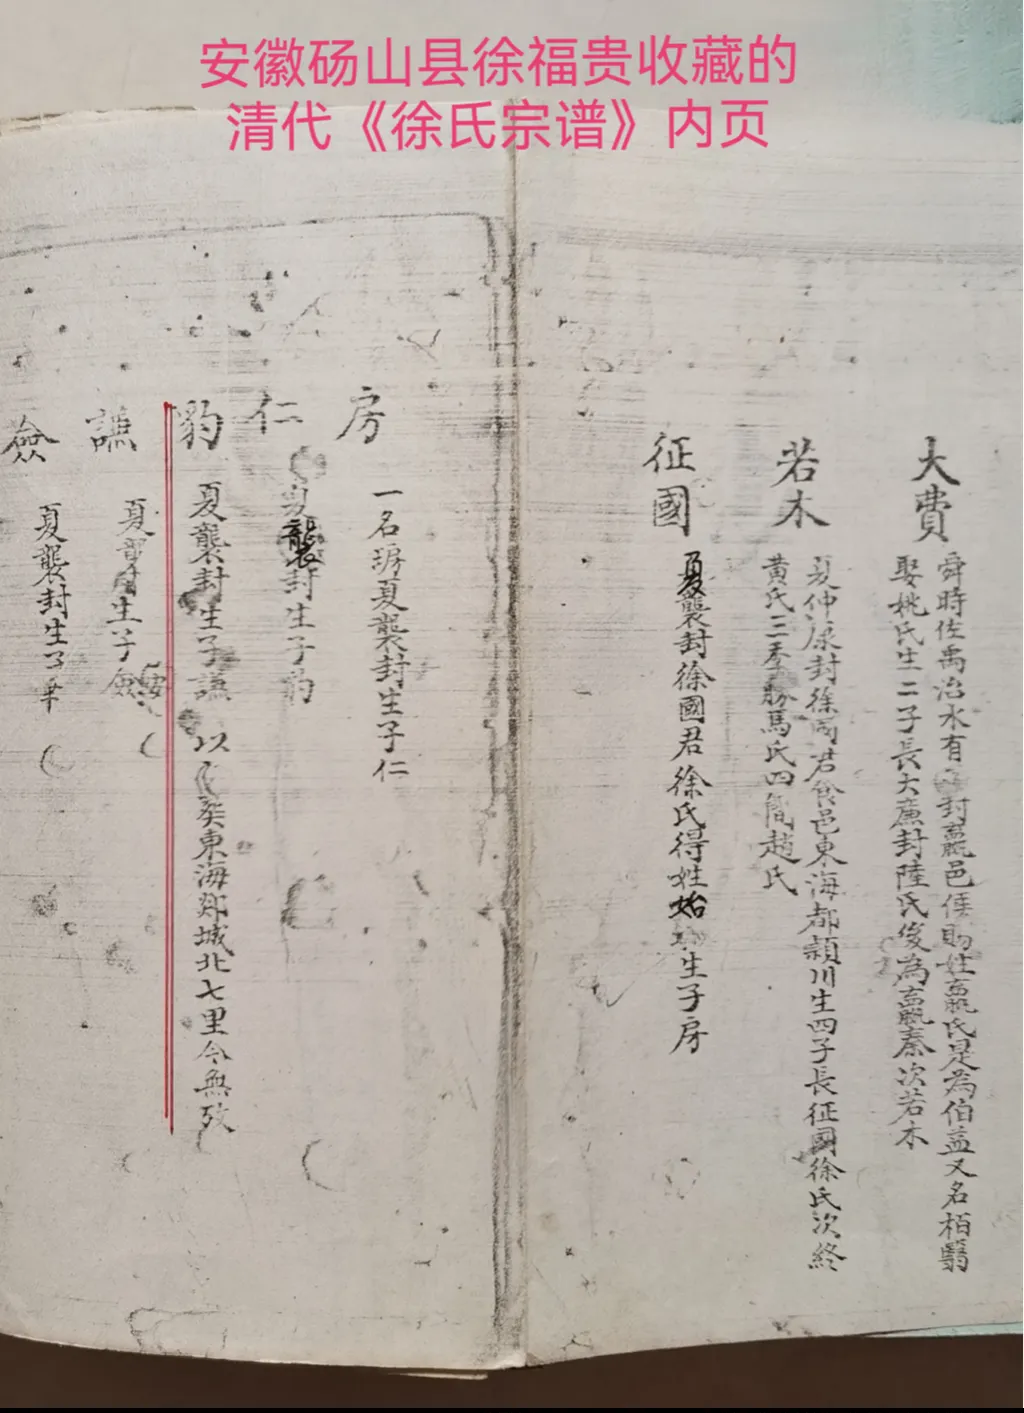 安徽砀山县徐福贵收藏的
清代《徐氏宗谱》内页
大費
舜時佐禹治水有 封嬴邑侯賜姓嬴氏是為伯益又名栢翳
娶姚氏生二子長大廉封陸氏後為嬴秦次若木
若木
夏仲康封徐國君食邑東海都潁川生四子長征國徐氏次終
黃氏三季勝馬氏四簡趙氏
征國
夏襲封徐國君徐氏得姓始 生子房
房
一名琈夏襲封生子仁
仁
襲封生子豹
豹
夏襲封生子謙 以 葵東海郯城北七里今無攷
謙
夏 封生子僉
僉
夏襲封生子